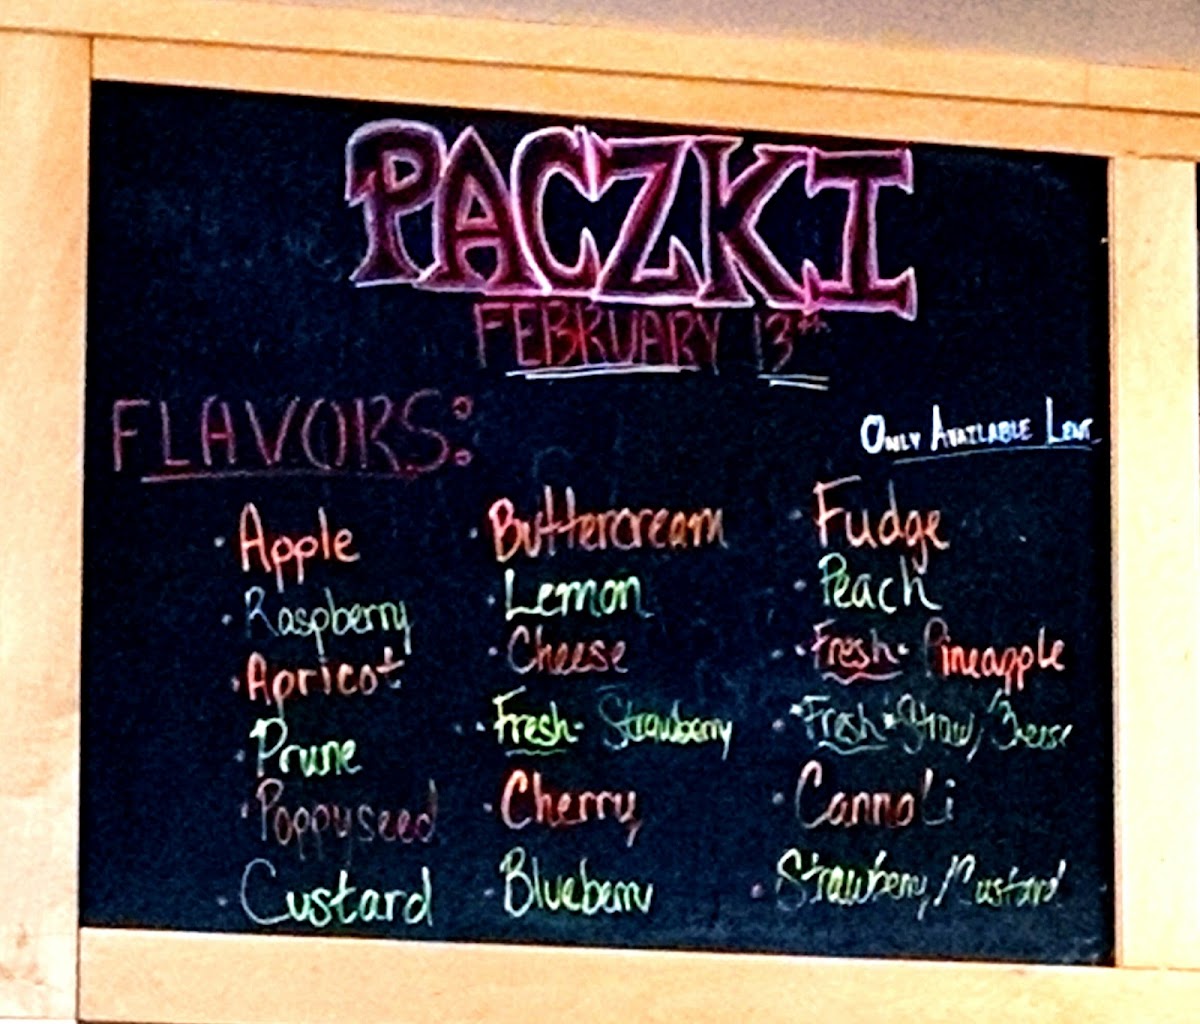 PACZKI
FEBRUARY 13th
FLAVORS:
ONLY AVAILABLE LENT
· Apple
· Raspberry
· Apricot
· Prune
· Poppyseed
· Custard
· Buttercream
· Lemon
· Cheese
· Fresh- Strawberry
· Cherry
· Blueberry
· Fudge
· Peach
· Fresh- Pineapple
· *Fresh* Straw/Cheese
· Cannoli
· Strawberry/Custard